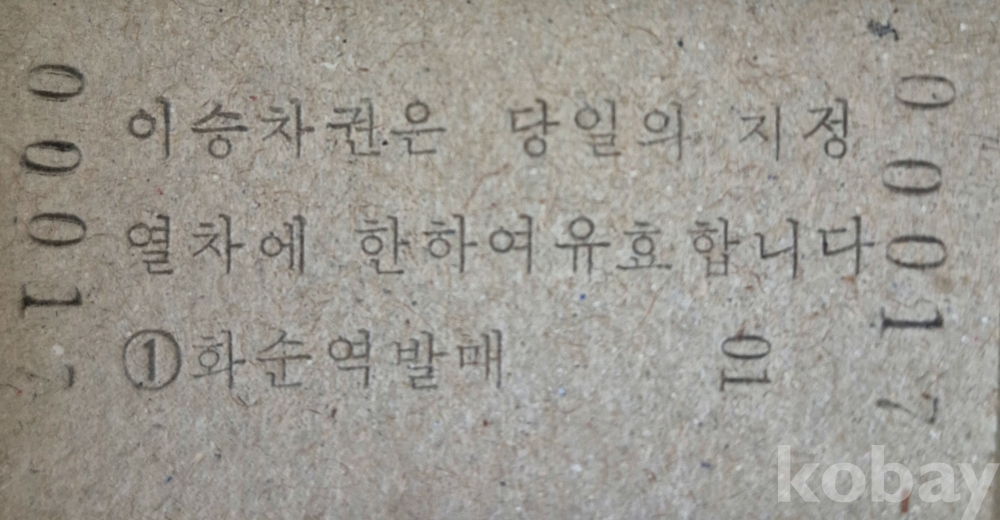 00017
이승차권은 당일의 지정
열차에 한하여유효합니다
①화순역발매
01
00017
kobay